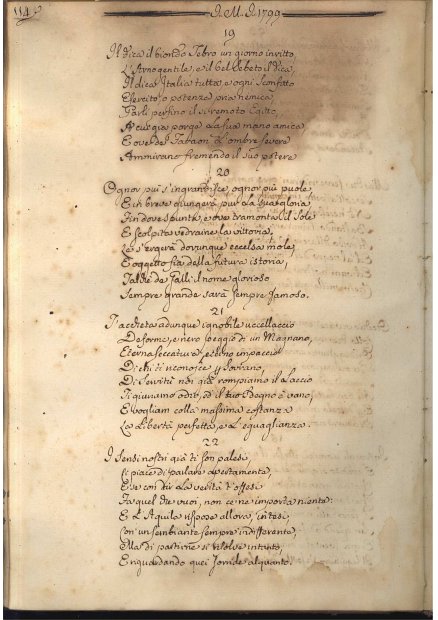 114
I. M. I. 1799
19
Il dica il biondo Tebro un giorno invitto,
L'Arno gentile, e il bel Sebeto il dica,
Il dica Italia tutta, e ogni sconfitto
Esercito o potenza pria nemica
Parli perfino il si remoto Egitto,
A cui già porge la sua mano amica
E ove de' Faraon l'ombre severe
Ammirano fremendo il suo potere
20
Ognor più s'ingrandisce, ognor più puole,
E in breve giungerà pur la sua gloria
Fin dove spunta, e ove tramonta il Sole
E scolpita vedraine la vittoria.
Le s'ergerà dovunque eccelsa mole,
E oggetto fia della futura istoria,
Tal de' Galli il nome glorioso
Sempre grande sarà sempre famoso.
21
T'accheta adunque ignobile uccellaccio
Deforme, e nero peggio di un Magnano,
Eterna seccatura, eterno impaccio
Di chi ti riconosce per Sovrano,
Di Servitù noi già rompiamo il laccio
Ti giuriamo odio, ed il tuo sdegno è vano,
E vogliam colla massima costanza
La Libertà perfetta, e l'eguaglianza.
22
I sensi nostri già ti son palesi,
Ci piace di parlare apertamente,
E se con dir la verità t'offesi
Fa quel che vuoi, non ce ne importa niente.
E l'Aquila rispose allora, intesi,
Con un sembiante sempre indifferente,
Ma di partirne si risolve intanto,
E riguardando quei sorride alquanto.